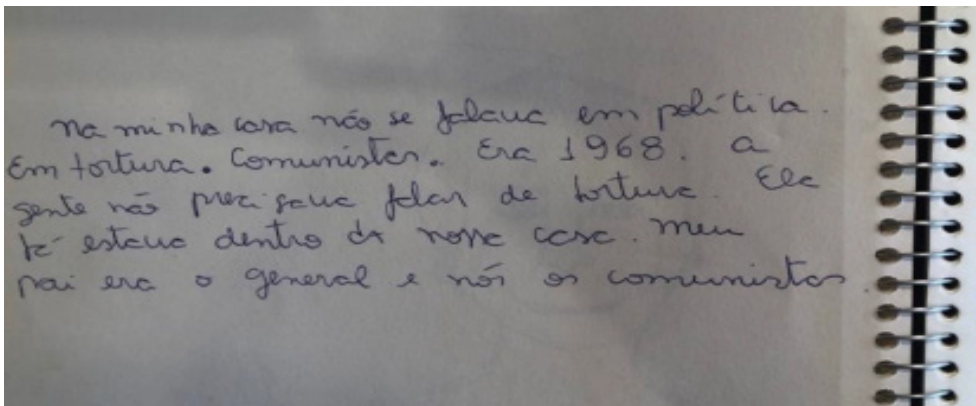 Na minha casa não se falava em política.
Em tortura. Comunistas. Era 1968. A
gente não precisava falar de tortura. Ela
já estava dentro da nossa casa. Meu
pai era o general e nós os comunistas.